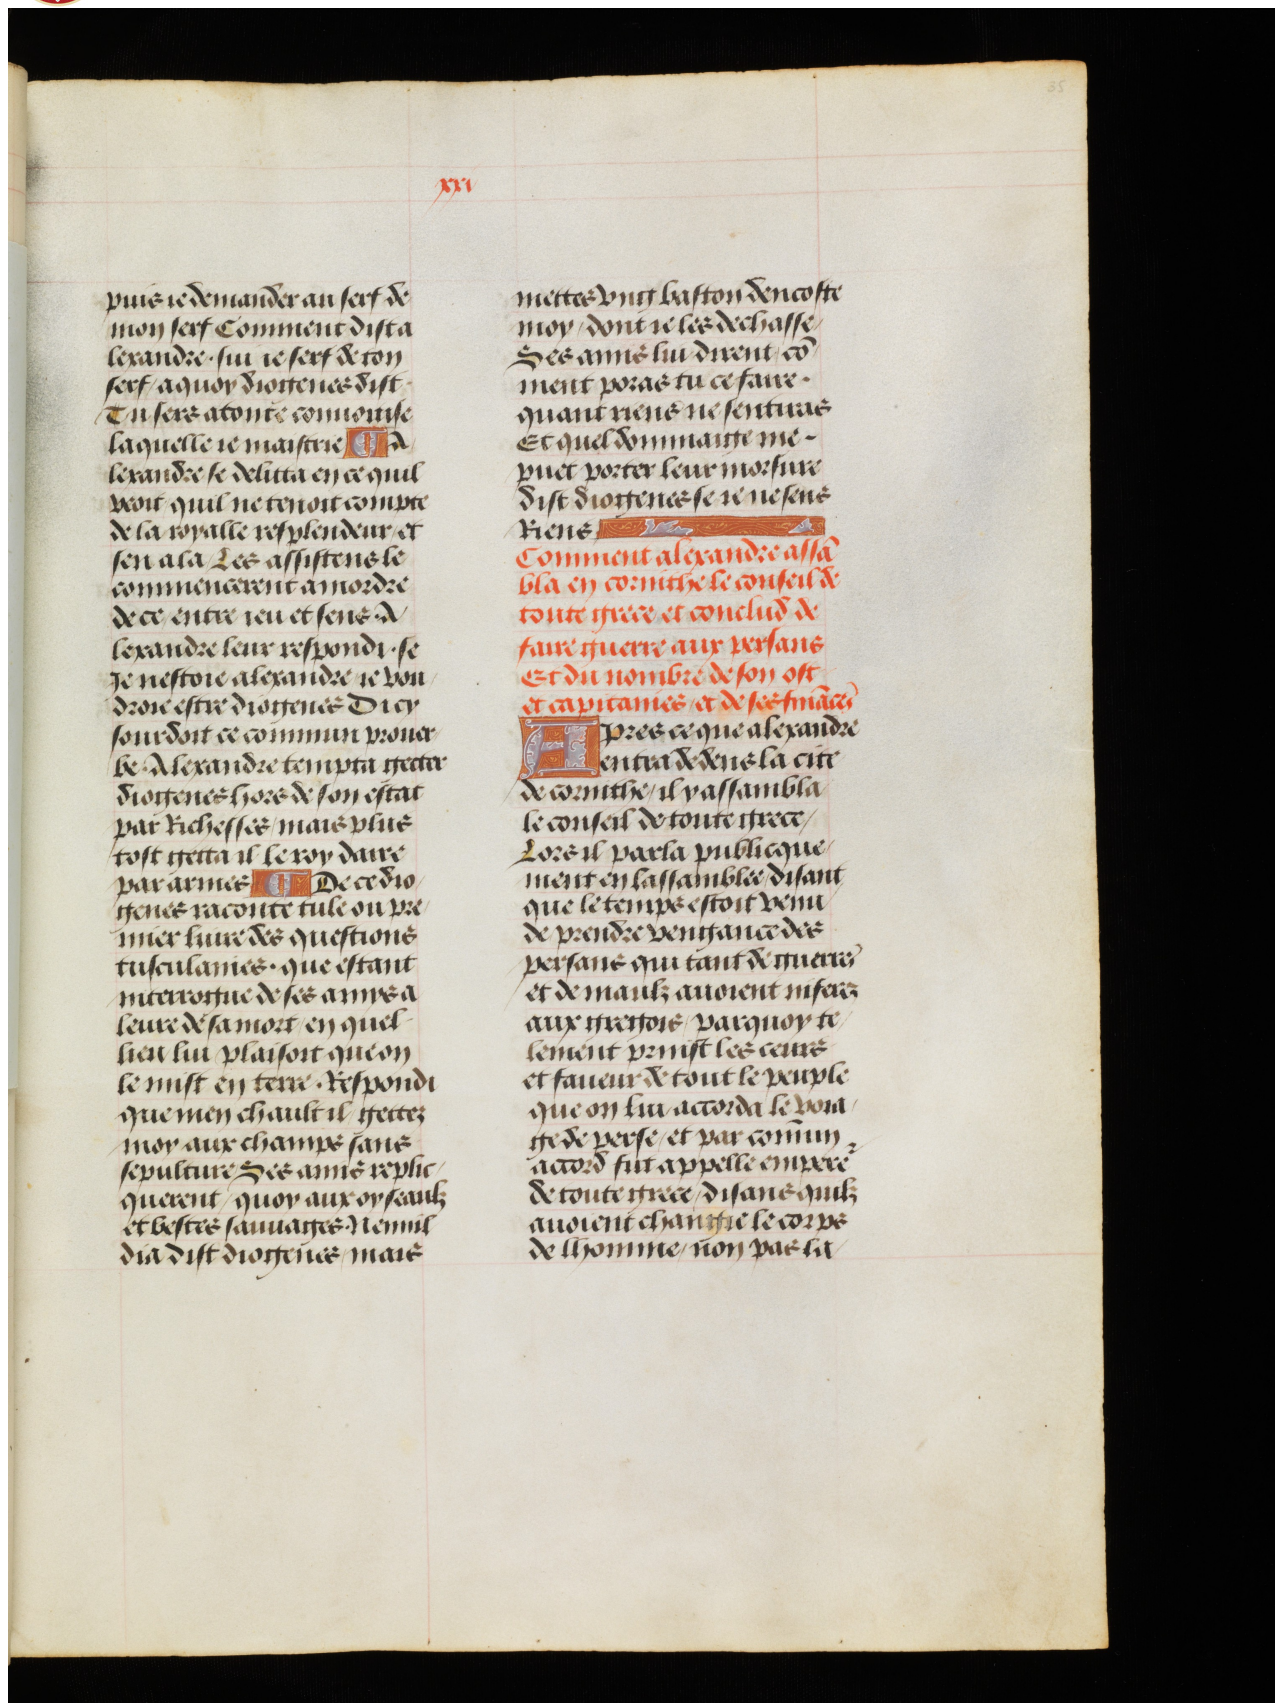 35
xxi
puis ie demander au serf de
mon serf Comment dist a
lexandre · sui ie serf de ton
serf / a quoy diogenes dist ·
Tu sers a toute conuoitise
laquelle ie maistrie ¶ A
lexandre se delitta en ce quil
veoit quil ne tenoit compte
de la royalle resplendeur / et
sen ala / Les assistens le
commencerent a mordre
de ce / entre ieu et sens · A /
lexandre leur respondi · se
Je nestoie alexandre ie vou /
droie estre diogenes Dicy
sourdoit ce commun prouer
be · Alexandre tempta getter
diogenes hors de son estat
par Richesses / mais plus
tost getta il le roy daire
par armes ¶ De ce dio /
genes raconte tule ou pre /
mier liure des questions
tusculanies · que estant
interrogue de ses amys a
leure de sa mort / en quel
lieu lui plaisoit que on
le mist en terre · Respondi
que men chault il / gettez
moy aux champs sans
sepulture Ses amis replic /
querent / quoy aux oyseaulz
et bestes sauuages · Nennil
dia dist diogenes / mais
mettes vng baston dencoste
moy / dont ie les dechasse /
Ses amis lui dirent / cõ
ment poras tu ce faire ·
quant riens ne sentiras
Et quel dommaige me -
puet porter leur morsure
dist diogenes se ie ne sens
Riens
Comment alexandre assã
bla en corinthe le conseil de
toute grece et conclud de
faire guerre aux persans
Et du nombre de son ost
et capitanies / et de ses finãces
Apres ce que alexandre
entra dedens la cite
de corinthe / il y assambla
le conseil de toute grece /
Lors il parla publicque /
ment en lassamblee / disant
que le temps estoit venu
de prendre vengance des
persans qui tant de guerres
et de maulz auoient inferez
aux gregois / parquoy te /
lement prinst les ceurs
et faueur de tout le peuple
que on lui accorda le voia /
ge de perse / et par com̄un
accord fut appelle empere᷑
de toute grece / disans quilz
auoient changie le corps
de lhomme / non pas la /